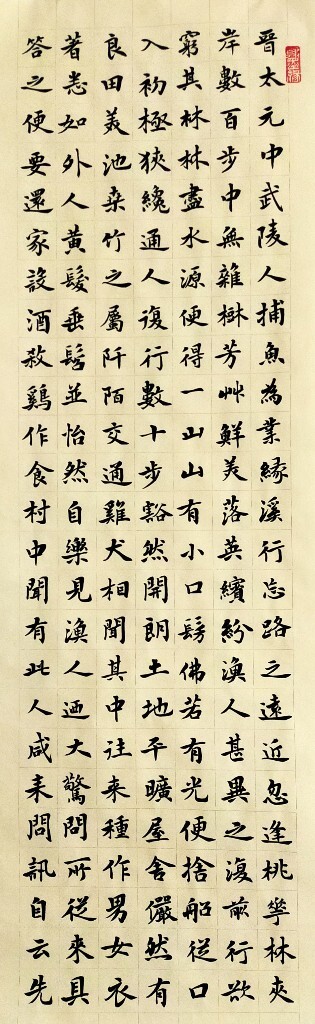 晉太元中武陵人捕魚為業緣溪行忘路之遠近忽逢桃華林夾
岸數百步中無雜樹芳艸鮮美落英繽紛漁人甚異之復前行欲
窮其林林盡水源便得一山山有小口髣佛若有光便捨船從口
入初極狹纔通人復行數十步豁然開朗土地平曠屋舍儼然有
良田美池桑竹之屬阡陌交通雞犬相聞其中往来種作男女衣
著悉如外人黃髮垂髫並怡然自樂見漁人迺大驚問所從來具
答之便要還家設酒殺鷄作食村中聞有此人咸耒問訊自云先